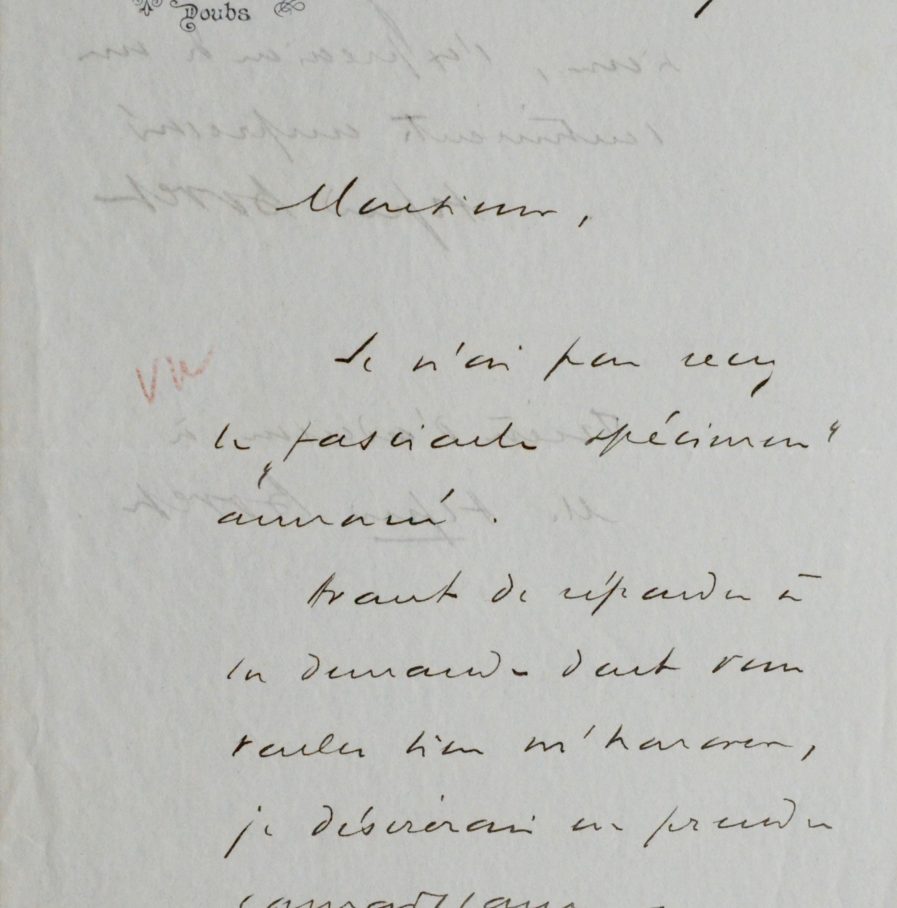 Doubs
Monsieur,
Je n'ai pas reçu
vu
le "fascicule spécimen"
annoncé.
Avant de répondre à
la demande dont vous
voulez bien m'honorer,
je désirerais en prendre
connaissance